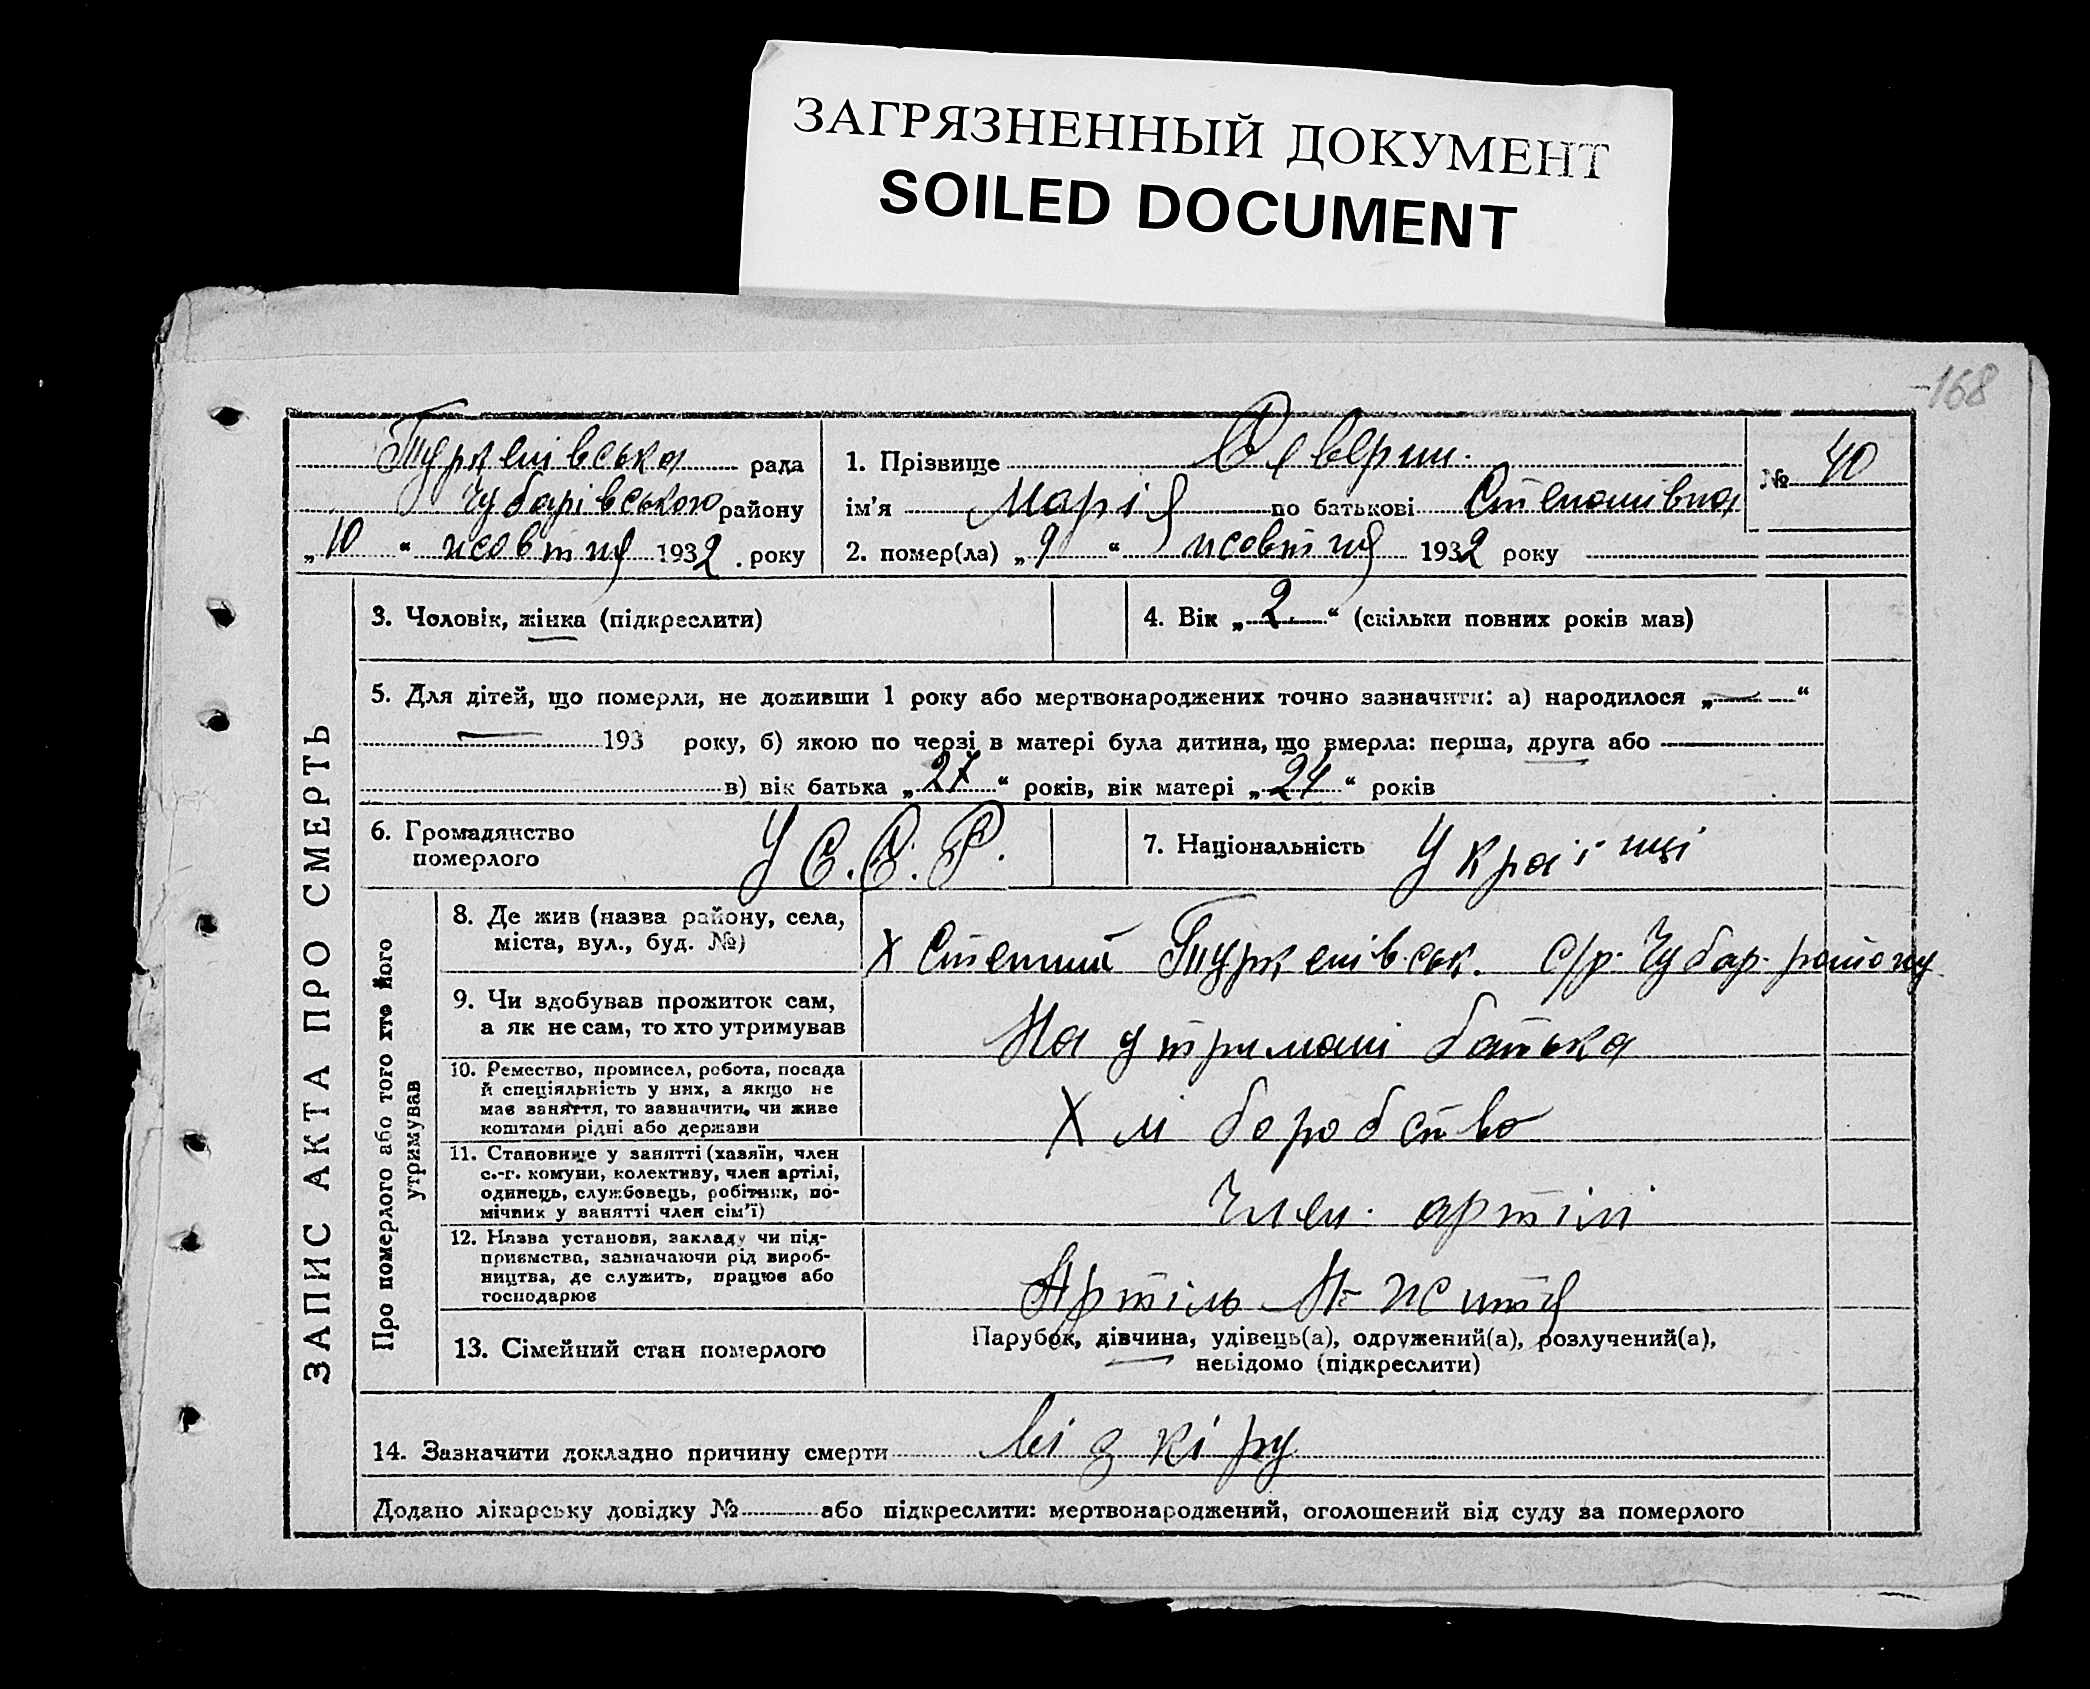 ЗАГРЯЗНЕННЫЙ ДОКУМЕНТ
SOILED DOCUMENT
168
Туркенівська рада
Чубарівського району
„10“ жовтня 1932. року
1. Прізвище Северин.
ім'я Марія по батькові Степанівна
2. помер(ла) „9“ жовтня 1932 року
№ 40
ЗАПИС АКТА ПРО СМЕРТЬ
3. Чоловік, жінка (підкреслити)
4. Вік „2“ (скільки повних років мав)
5. Для дітей, що померли, не доживши 1 року або мертвонароджених точно зазначити: а) народилося „—“
— 193 року, б) якою по черзі в матері була дитина, що вмерла: перша, друга або
в) вік батька „27“ років, вік матері „24“ років
6. Громадянство
померлого
У С.С.Р.
7. Національність Україінці
Про померлого або того хто його
утримував
8. Де жив (назва району, села,
міста, вул., буд. №)
Х Степний Туркенівськ. с/р. Чубар. району
9. Чи здобував прожиток сам,
а як не сам, то хто утримував
На утримані батька
10. Ремество, промисел, робота, посада
й спеціяльність у них, а якщо не
має заняття, то зазначити, чи живе
коштами рідні або держави
Хліборобство
11. Становище у занятті (хазяїн, член
с.-г. комуни, колективу, член артілі,
одинець, службовець, робітник, по-
мічник у занятті член сім'ї)
Член. артілі
12. Назва установи, закладу чи під-
приємства, зазначаючи рід вироб-
ництва, де служить, працює або
господарює
Артіль Н-життя
13. Сімейний стан померлого
Парубок, дівчина, удівець(а), одружений(а), розлучений(а),
невідомо (підкреслити)
14. Зазначити докладно причину смерти від кіру
Додано лікарську довідку № або підкреслити: мертвонароджений, оголошений від суду за померлого